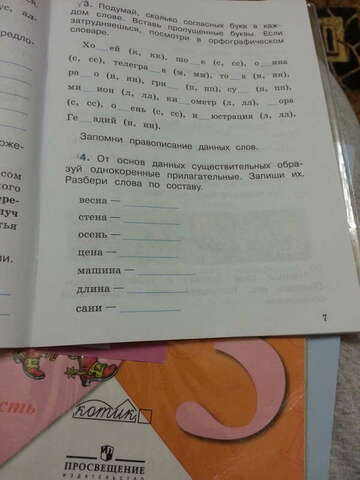 3. Подумай, сколько согласных букв в каж-
дом слове. Вставь пропущенные буквы. Если
затрудняешься, посмотри в орфографическом
словаре.
Хо__ей (к, кк), шо__е (с, сс), о__ина
(с, сс), телегра__а (м, мм), то__а (н, нн),
ра__о (н, нн), гри__ (п, пп), су__ (п, пп),
ми__ион (л, лл), ки__ометр (л, лл), __ора
(с, сс), о__ень (с, сс), и__юстрация (л, лл),
Ге__адий (н, нн).
Запомни правописание данных слов.
4. От основ данных существительных обра-
зуй однокоренные прилагательные. Запиши их.
Разбери слова по составу.
весна —
стена —
осень —
цена —
машина —
длина —
сани —
7
котик
ПРОСВЕЩЕНИЕ
ИЗДАТЕЛЬСТВО